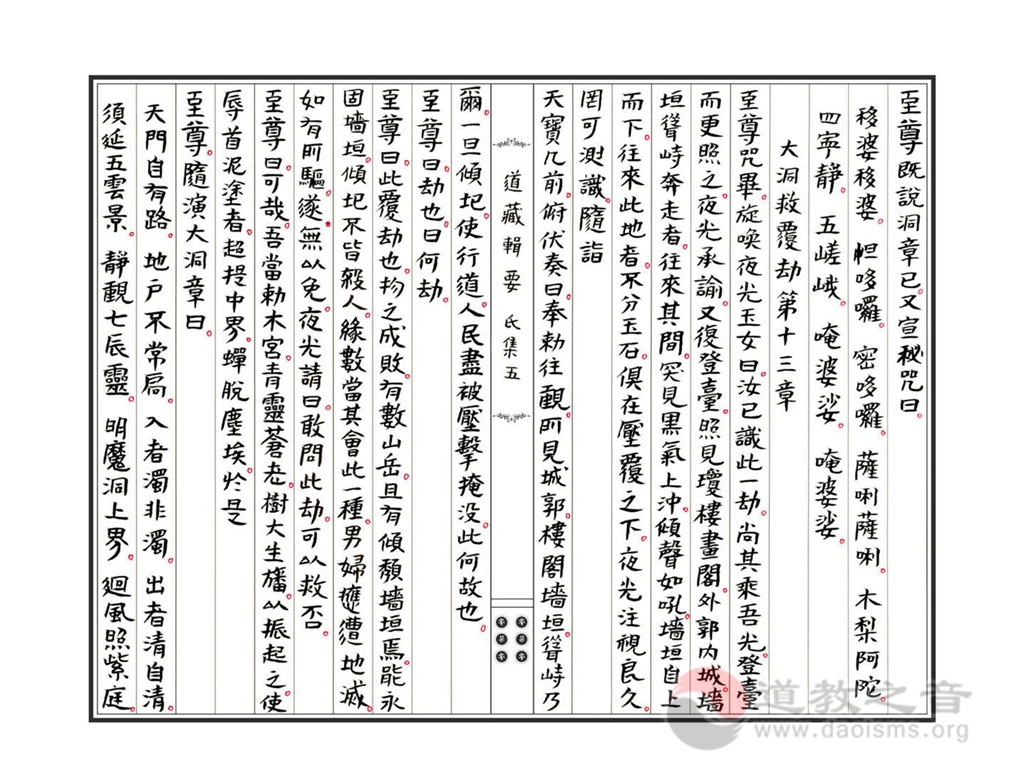 至尊既說洞章已。又宣秘咒曰。
移婆移婆。怛哆囉。密哆囉。薩唎薩唎。木梨阿陀。
四寧靜。五嵯峨。唵婆娑。唵婆娑。
大洞救覆劫第十三章
至尊咒畢。旋喚夜光玉女曰。汝已識此一劫。尚其乘吾光。登臺
而更照之。夜光承諭。又復登臺。照見瓊樓畫閣。外郭內城。墻
垣聳峙。奔走者。往來其間。突見黑氣上沖。傾聲如吼。墻垣自上
而下。往來此地者。不分玉石。俱在壓覆之下。夜光注視良久。
罔可測識。隨詣
天寶几前。俯伏奏曰。奉勅往觀。所見城郭。樓閣墻垣。聳峙乃
道藏輯要 氐集五
爾。一旦傾圮。使行道。人民盡被壓擊掩没。此何故也。
至尊曰。劫也。曰何劫。
至尊曰。此覆劫也。物之成敗。有數山岳。且有傾頹。墻垣焉能永
固。墻垣。傾圮不皆殺人。緣數當其會。此一種。男婦應遭地滅。
如有所驅。遂無以免。夜光請曰。敢問此劫。可以救否。
至尊曰。可哉。吾當勅木宮。青靈蒼老。樹大生旛。以振起之。使
辱首泥塗者。超提中界。蟬脫塵埃。於是
至尊。隨演大洞章曰。
天門自有路。地戶不常扃。入者濁非濁。出者清自清。
須延五雲景。靜觀七辰靈。明魔洞上界。迴風照紫庭。
道教之音
www.daoisms.org